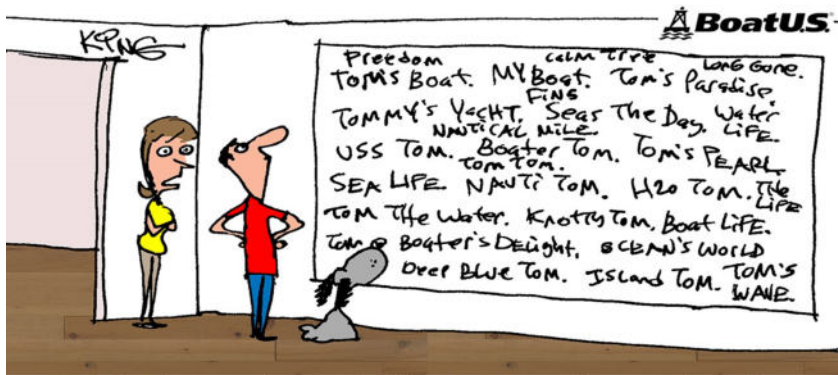 BoatU.S.
KING
Freedom Calm Tree Long Gone.
Tom's Boat. My Boat. Tom's Paradise
Fins
Tommy's Yacht. Seas The Day. Water Life.
Nautical Mile.
USS Tom. Boater Tom. Tom's Pearl.
Tom Tom.
Sea Life. Nauti Tom. H2o Tom. The Life
Tom The Water. Knotty Tom. Boat Life.
Tom @ Boater's Delight. Ocean's World
Deep Blue Tom. Island Tom. Tom's Wave.